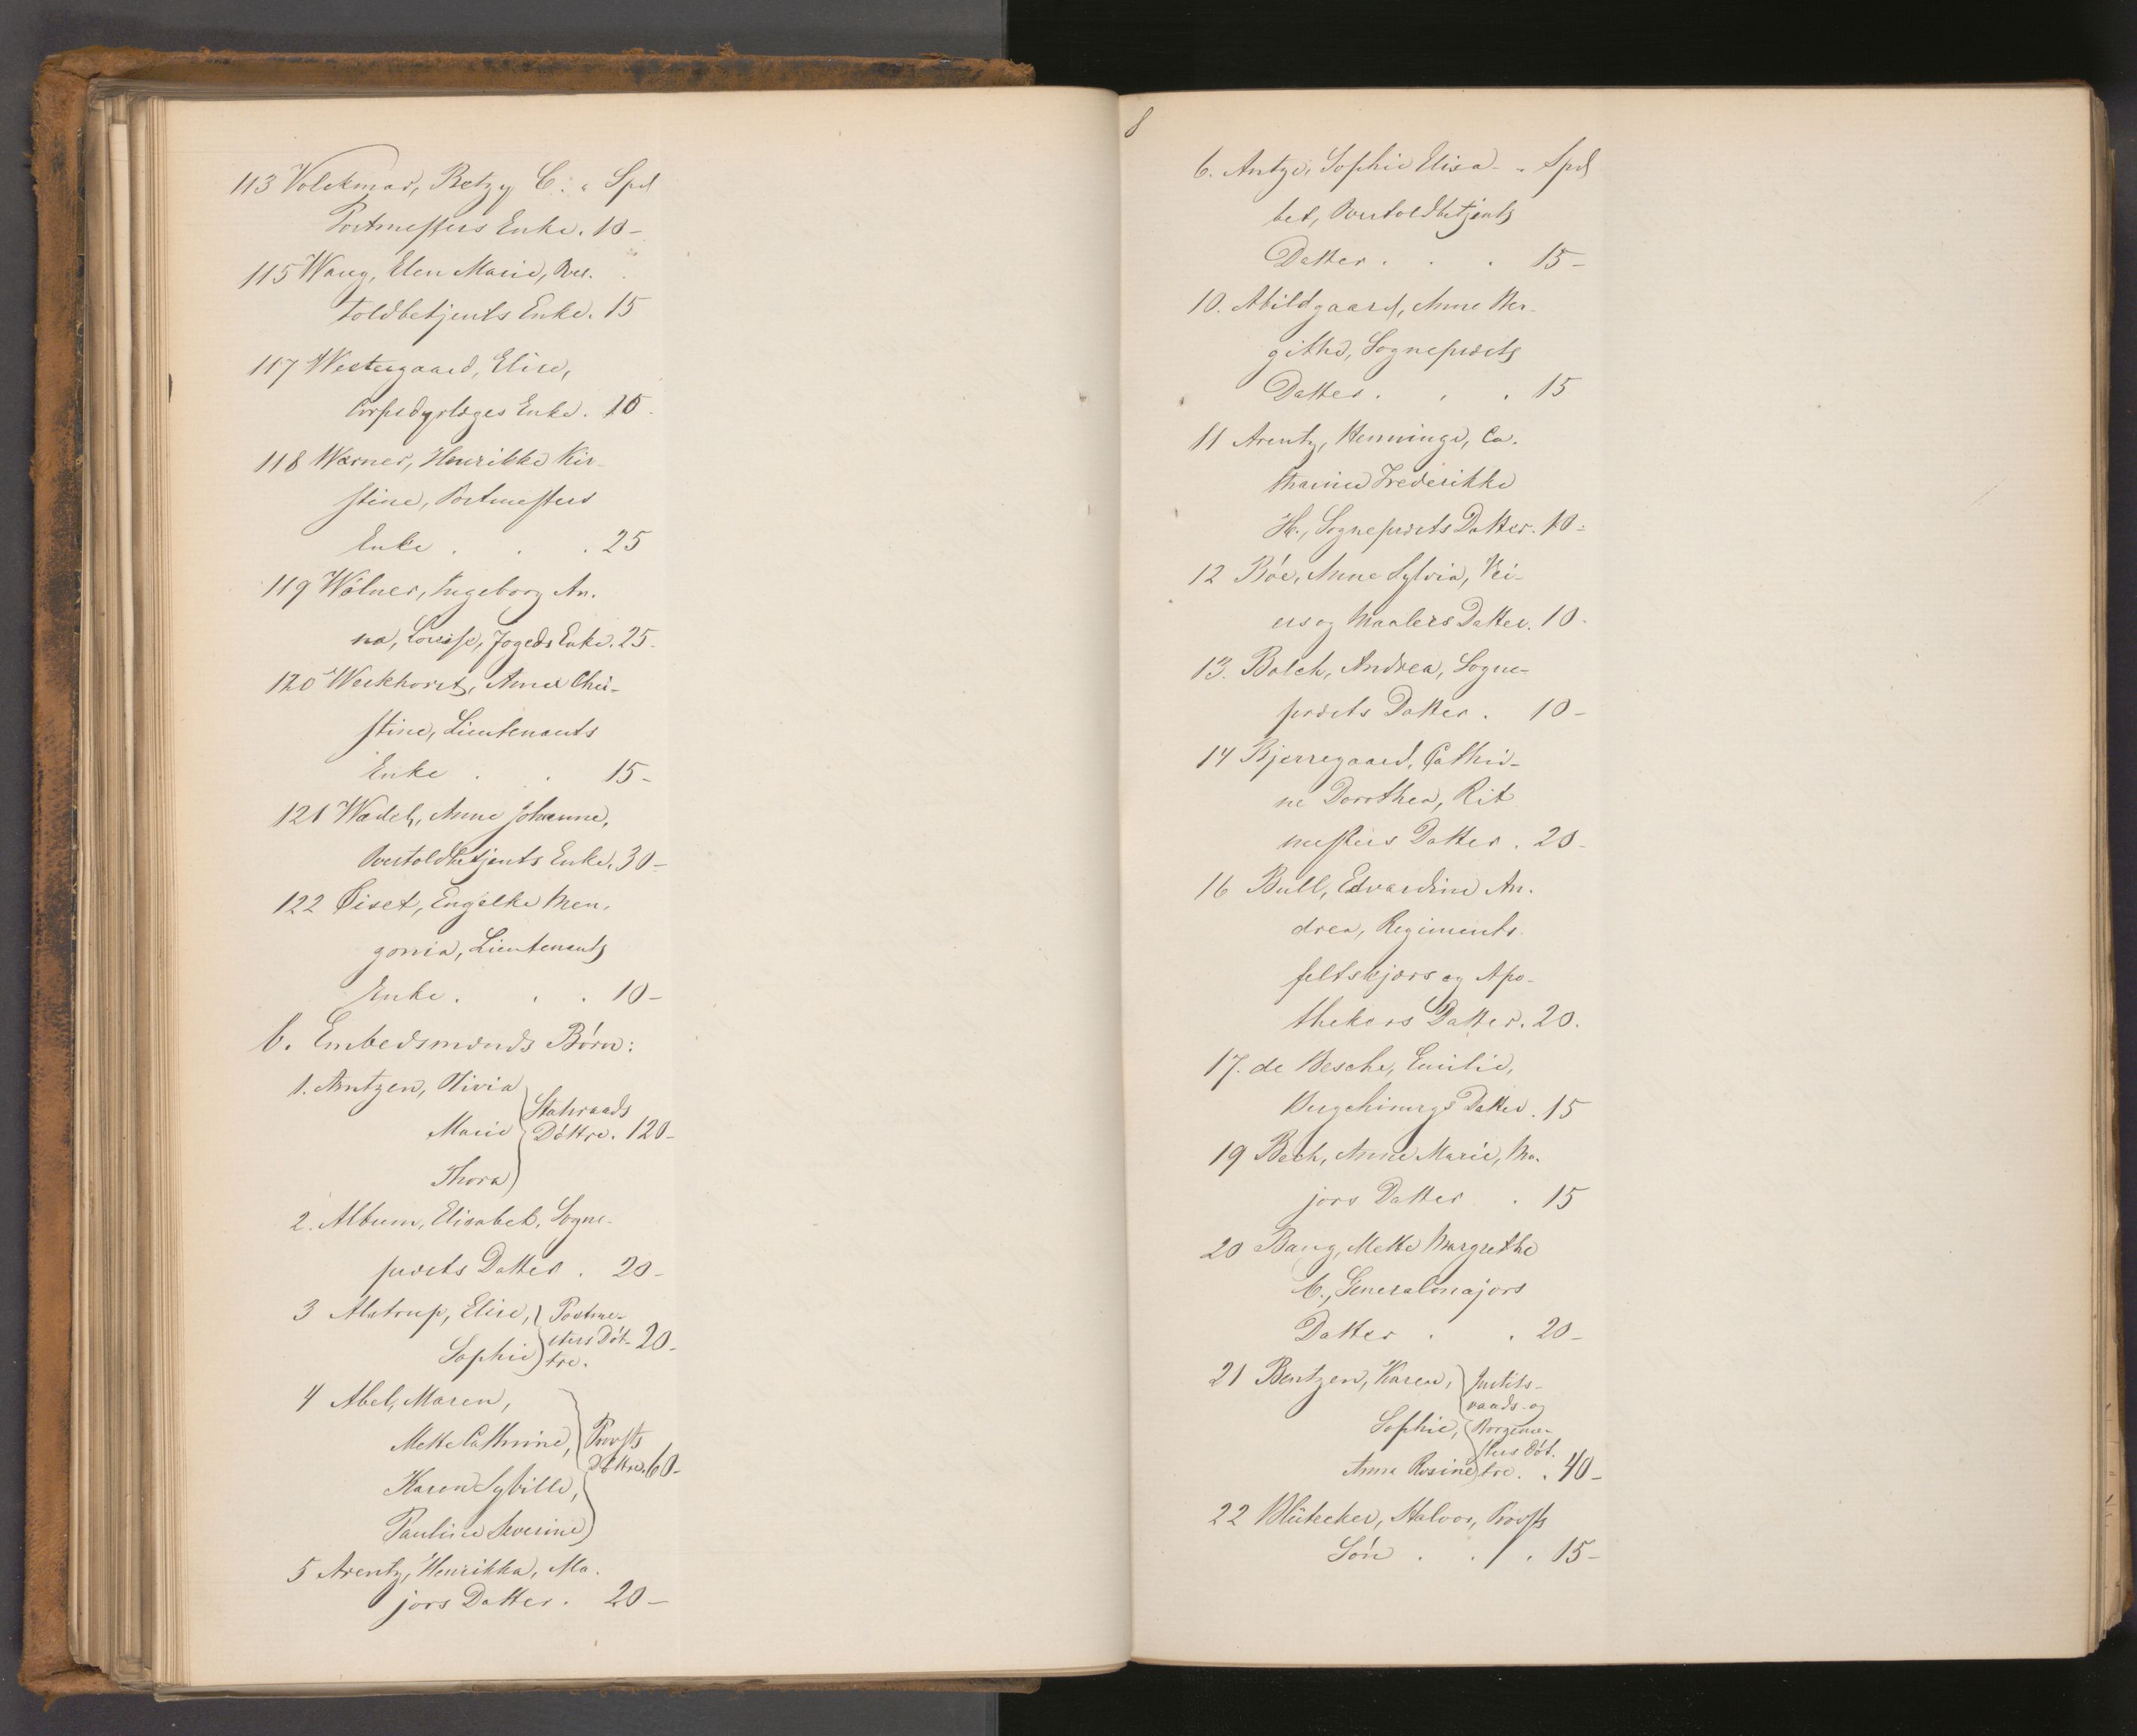 113 Volckmar, Betzy C. " Spd
Postmesters Enke. 10-
115 Wang, Elen Marie, Over-
toldbetjents Enke. 15
117 Westergaard, Elise,
Corpsdyrlæges Enke. 10-
118 Warner, Henrikke Kir-
stine, Postmesters
Enke . . . 25
119 Wölner, Ingeborg An-
na, Lovise, Fogeds Enke. 25-
120 Werkhorst, Anne Chri-
stine, Lieutenants
Enke . . 15-
121 Wedel, Anne Johanne,
Overtoldbetjents Enke. 30-
122 Øiset, Engelke Men-
gonia, Lieutenants
Enke . . . 10-
b. Embedsmænds Börn:
1. Arntzen, Olivia
Marie Statsraads Döttre. 120-
Thora
2. Album, Elisabet, Sogne-
præsts Datter . 20-
3 Alstrup, Elise, Postme-
Sophie sters Döt- 20-
tre.
4 Abel, Maren,
Mette Cathrine, Provsts
Karen Sybille, Döttre. 60-
Pauline Severine
5 Arentz, Henrikka, Ma-
jors Datter . 20-
8
6. Antze, Sophie Elisa- " Spd
bet, Overtoldbetjents
Datter . . . 15-
10. Abildgaard, Anne Ber-
githe, Sognepræsts
Datter . . . 15
11 Arentz, Henninge, Ca-
thrine Frederikke
H., Sognepræsts Datter. 10-
12 Böe, Anne Sylvia, Vei-
er og Maalers Datter. 10-
13. Balch, Andrea, Sogne-
præsts Datter . 10-
14 Bjerregaard, Cathri-
ne Dorothea, Rit
mesters Datter . 20-
16 Bull, Edvardine An-
drea, Regiments-
feltskjærs og Apo-
thekers Datter. 20.
17. de Besche, Emilie,
Bergchirurgs Datter. 15
19 Bech, Anne Marie, Ma-
jors Datter . 15
20 Bang, Mette Margrethe
C., Generalmajors
Datter . . 20-
21 Bentzen, Karen, Justits-
raads- og
Sophie, Borgeme-
sters Döt-
Anna Rosine tre. . 40-
22 Halvor, Provsts
Sön . . . 15-